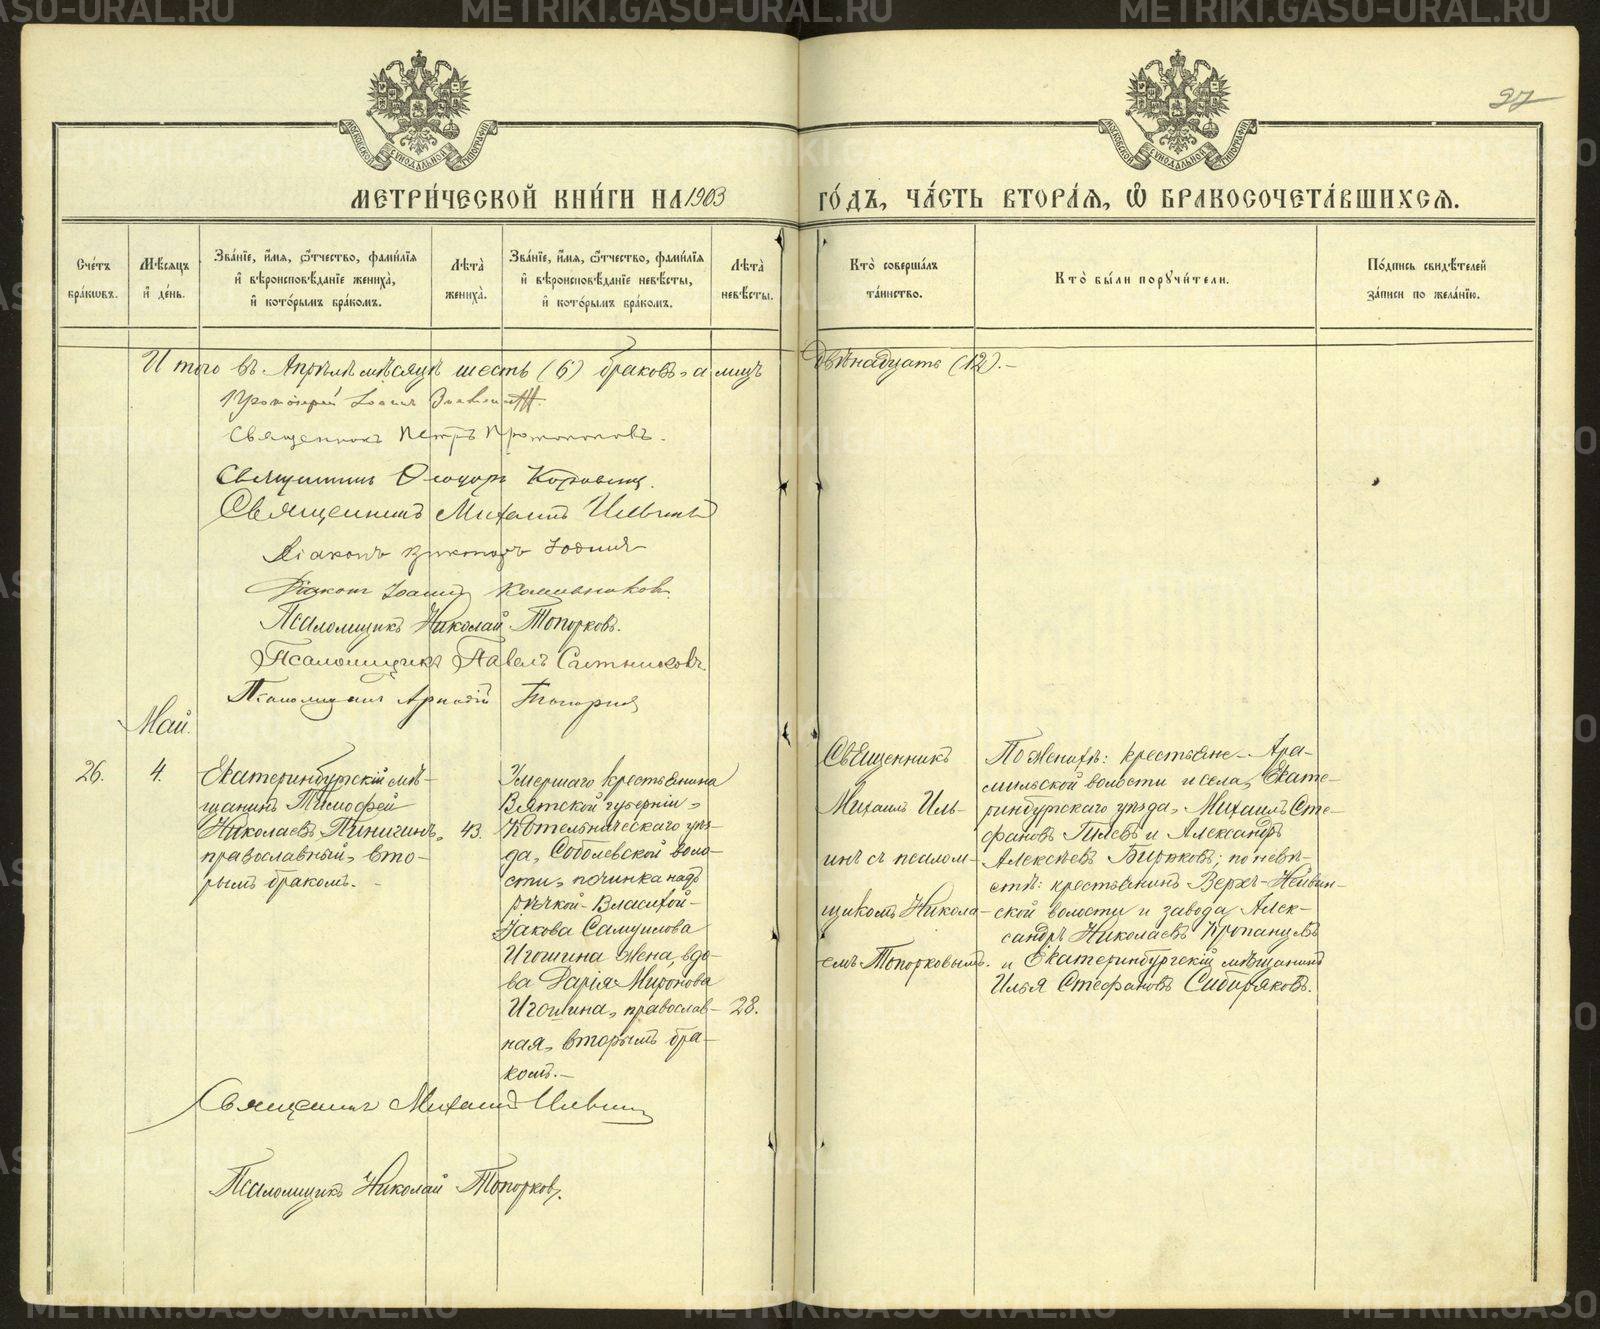 METRIKI.GASO-URAL.RU
27
МОСКОВСКОЙ СѴНОДАЛЬНОЙ ТИПОГРАФІИ
МОСКОВСКОЙ СѴНОДАЛЬНОЙ ТИПОГРАФІИ
МЕТРИ́ЧЕСКОЙ КНИ́ГИ НА 1903 ГО́ДЪ, ЧА́СТЬ ВТОРА́Я, Ѡ БРАКОСОЧЕТА́ВШИХСЯ.
Сче́тъ бра́кѡвъ.
Мѣ́сяцъ и҆ де́нь.
Зва́нїе, и҆́мѧ, ѻ҆́тчество, фами́лїѧ и҆ вѣроисповѣ́данїе жениха̀, и҆ кото́рымъ бра́комъ.
Лѣ́та жениха̀.
Зва́нїе, и҆́мѧ, ѻ҆́тчество, фами́лїѧ и҆ вѣроисповѣ́данїе невѣ́сты, и҆ кото́рымъ бра́комъ.
Лѣ́та невѣ́сты.
Кто̀ соверша́лъ та́инство.
Кто̀ бы́ли порꙋчи́тели.
По́дпись свидѣ́телей за́писи по жела́нїю.
Итого въ Апрѣлѣ мѣсяцѣ шесть (6) браковъ, а лицъ двѣнадцать (12).-
Протоіерей Іоаннъ
Священникъ Петръ Протопоповъ.
Священникъ Ѳеодоръ Коровинъ.
Священникъ Михаилъ Ильинъ
Діаконъ Викторъ
Діаконъ Іоаннъ
Псаломщикъ Николай Топорковъ.
Псаломщикъ Павелъ Ситниковъ
Псаломщикъ Аркадій
Май.
26.
4.
Екатеринбургскій мѣ-
щанинъ Тимофей
Николаевъ Пиничинъ,
православный, вто-
рымъ бракомъ.-
43.
Умершаго крестьянина
Вятской губерніи,
Котельническаго уѣз-
да, Соболевской воло-
сти, починка надъ
рѣчкой- Власихой-
Іакова Самуилова
Игошина жена, вдо-
ва Дарія Миронова
Игошина, православ-
ная, вторымъ бра-
комъ.-
28.
Священник
Михаилъ Иль-
инъ съ псалом-
щикомъ Никола-
емъ Топорковымъ.
По женихѣ: крестьяне- Ара-
мильской волости и села, Екате-
ринбургскаго уѣзда, Михаилъ Сте-
фановъ Пѣевъ и Александръ
Алексѣевъ Бирюковъ; по невѣ-
стѣ: крестьянинъ Верхъ-Нейвин-
ской волости и завода, Алек-
сандръ Николаевъ Кропанцевъ
и Екатеринбургскій мѣщанинъ
Илья Стефановъ Сибиряковъ.
Священникъ Михаилъ Ильинъ
Псаломщикъ Николай Топорковъ.